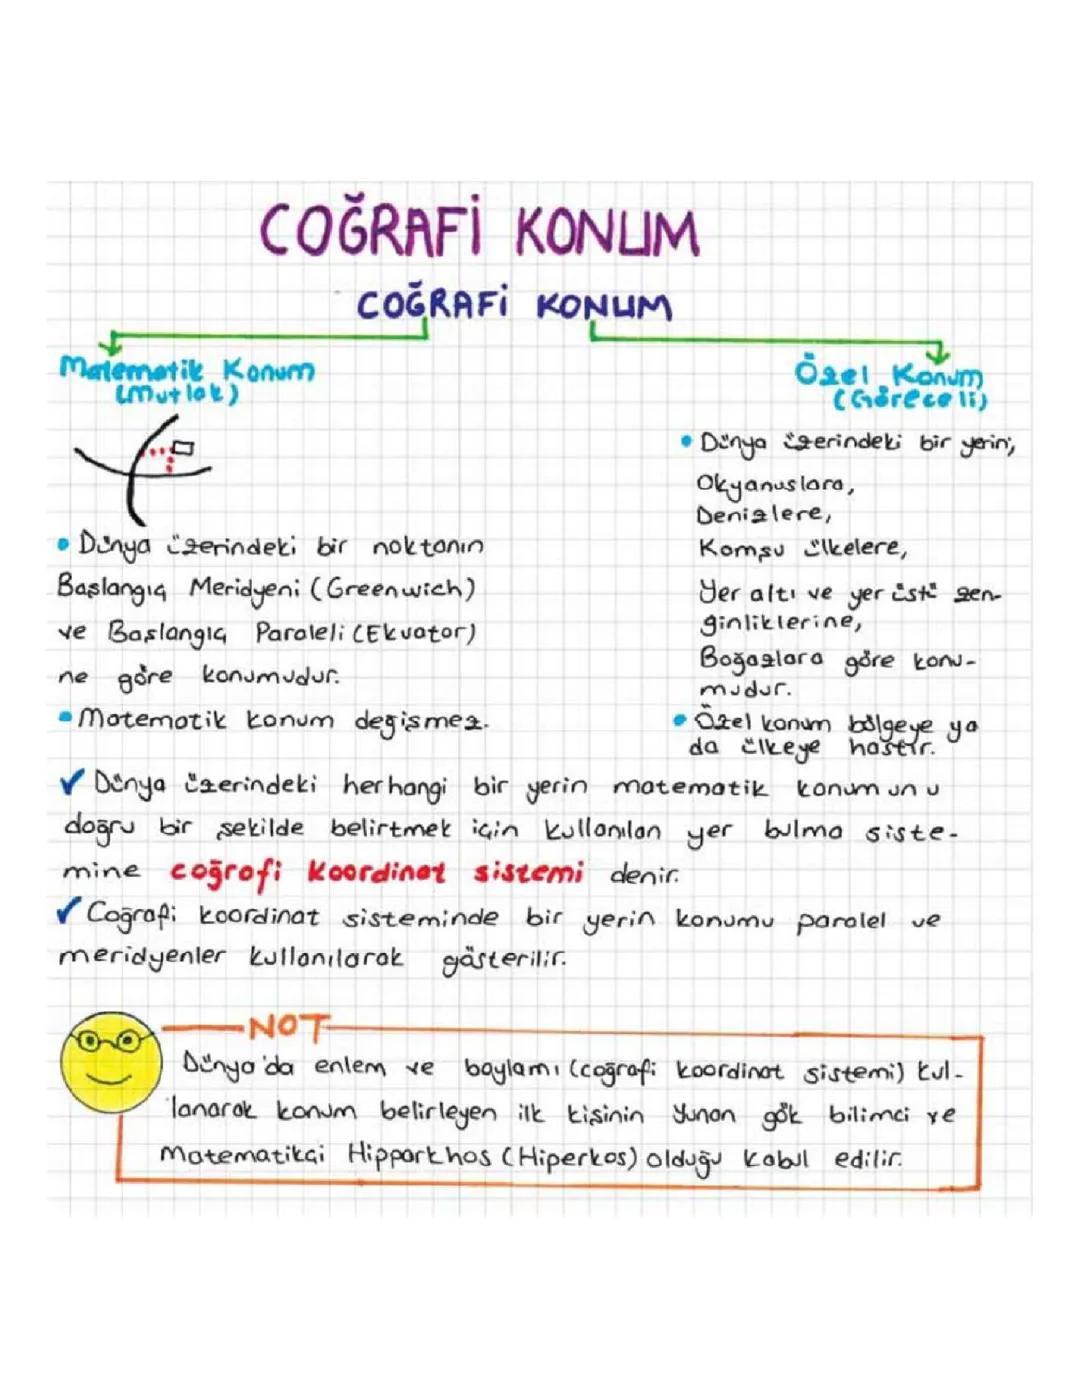 COĞRAFİ KONUM
COĞRAFİ KONUM
Matematik Konum
(Mutlak)
• Dünya üzerindeki bir noktanın
Başlangıç Meridyeni (Greenwich)
ve Başlangıç Paraleli (Ekvator)
ne göre konumudur.
• Matematik konum değişmez.
Özel Konum
(Göreceli)
• Dünya üzerindeki bir yerin;
Okyanuslara,
Denizlere,
Komşu ülkelere,
Yer altı ve yer üstü zen-
ginliklerine,
Boğazlara göre konu-
mudur.
• Özel konum bölgeye ya
da ülkeye hastır.
✓ Dünya üzerindeki herhangi bir yerin matematik konumunu
doğru bir şekilde belirtmek için kullanılan yer bulma siste-
mine coğrafi koordinat sistemi denir.
✓ Coğrafi koordinat sisteminde bir yerin konumu paralel ve
meridyenler kullanılarak gösterilir.
NOT
Dünya'da enlem ve boylamı (coğrafi koordinat sistemi) kul-
lanarak konum belirleyen ilk kişinin Yunan gök bilimci ve
Matematikçi Hipparkhos (Hiperkos) olduğu kabul edilir.